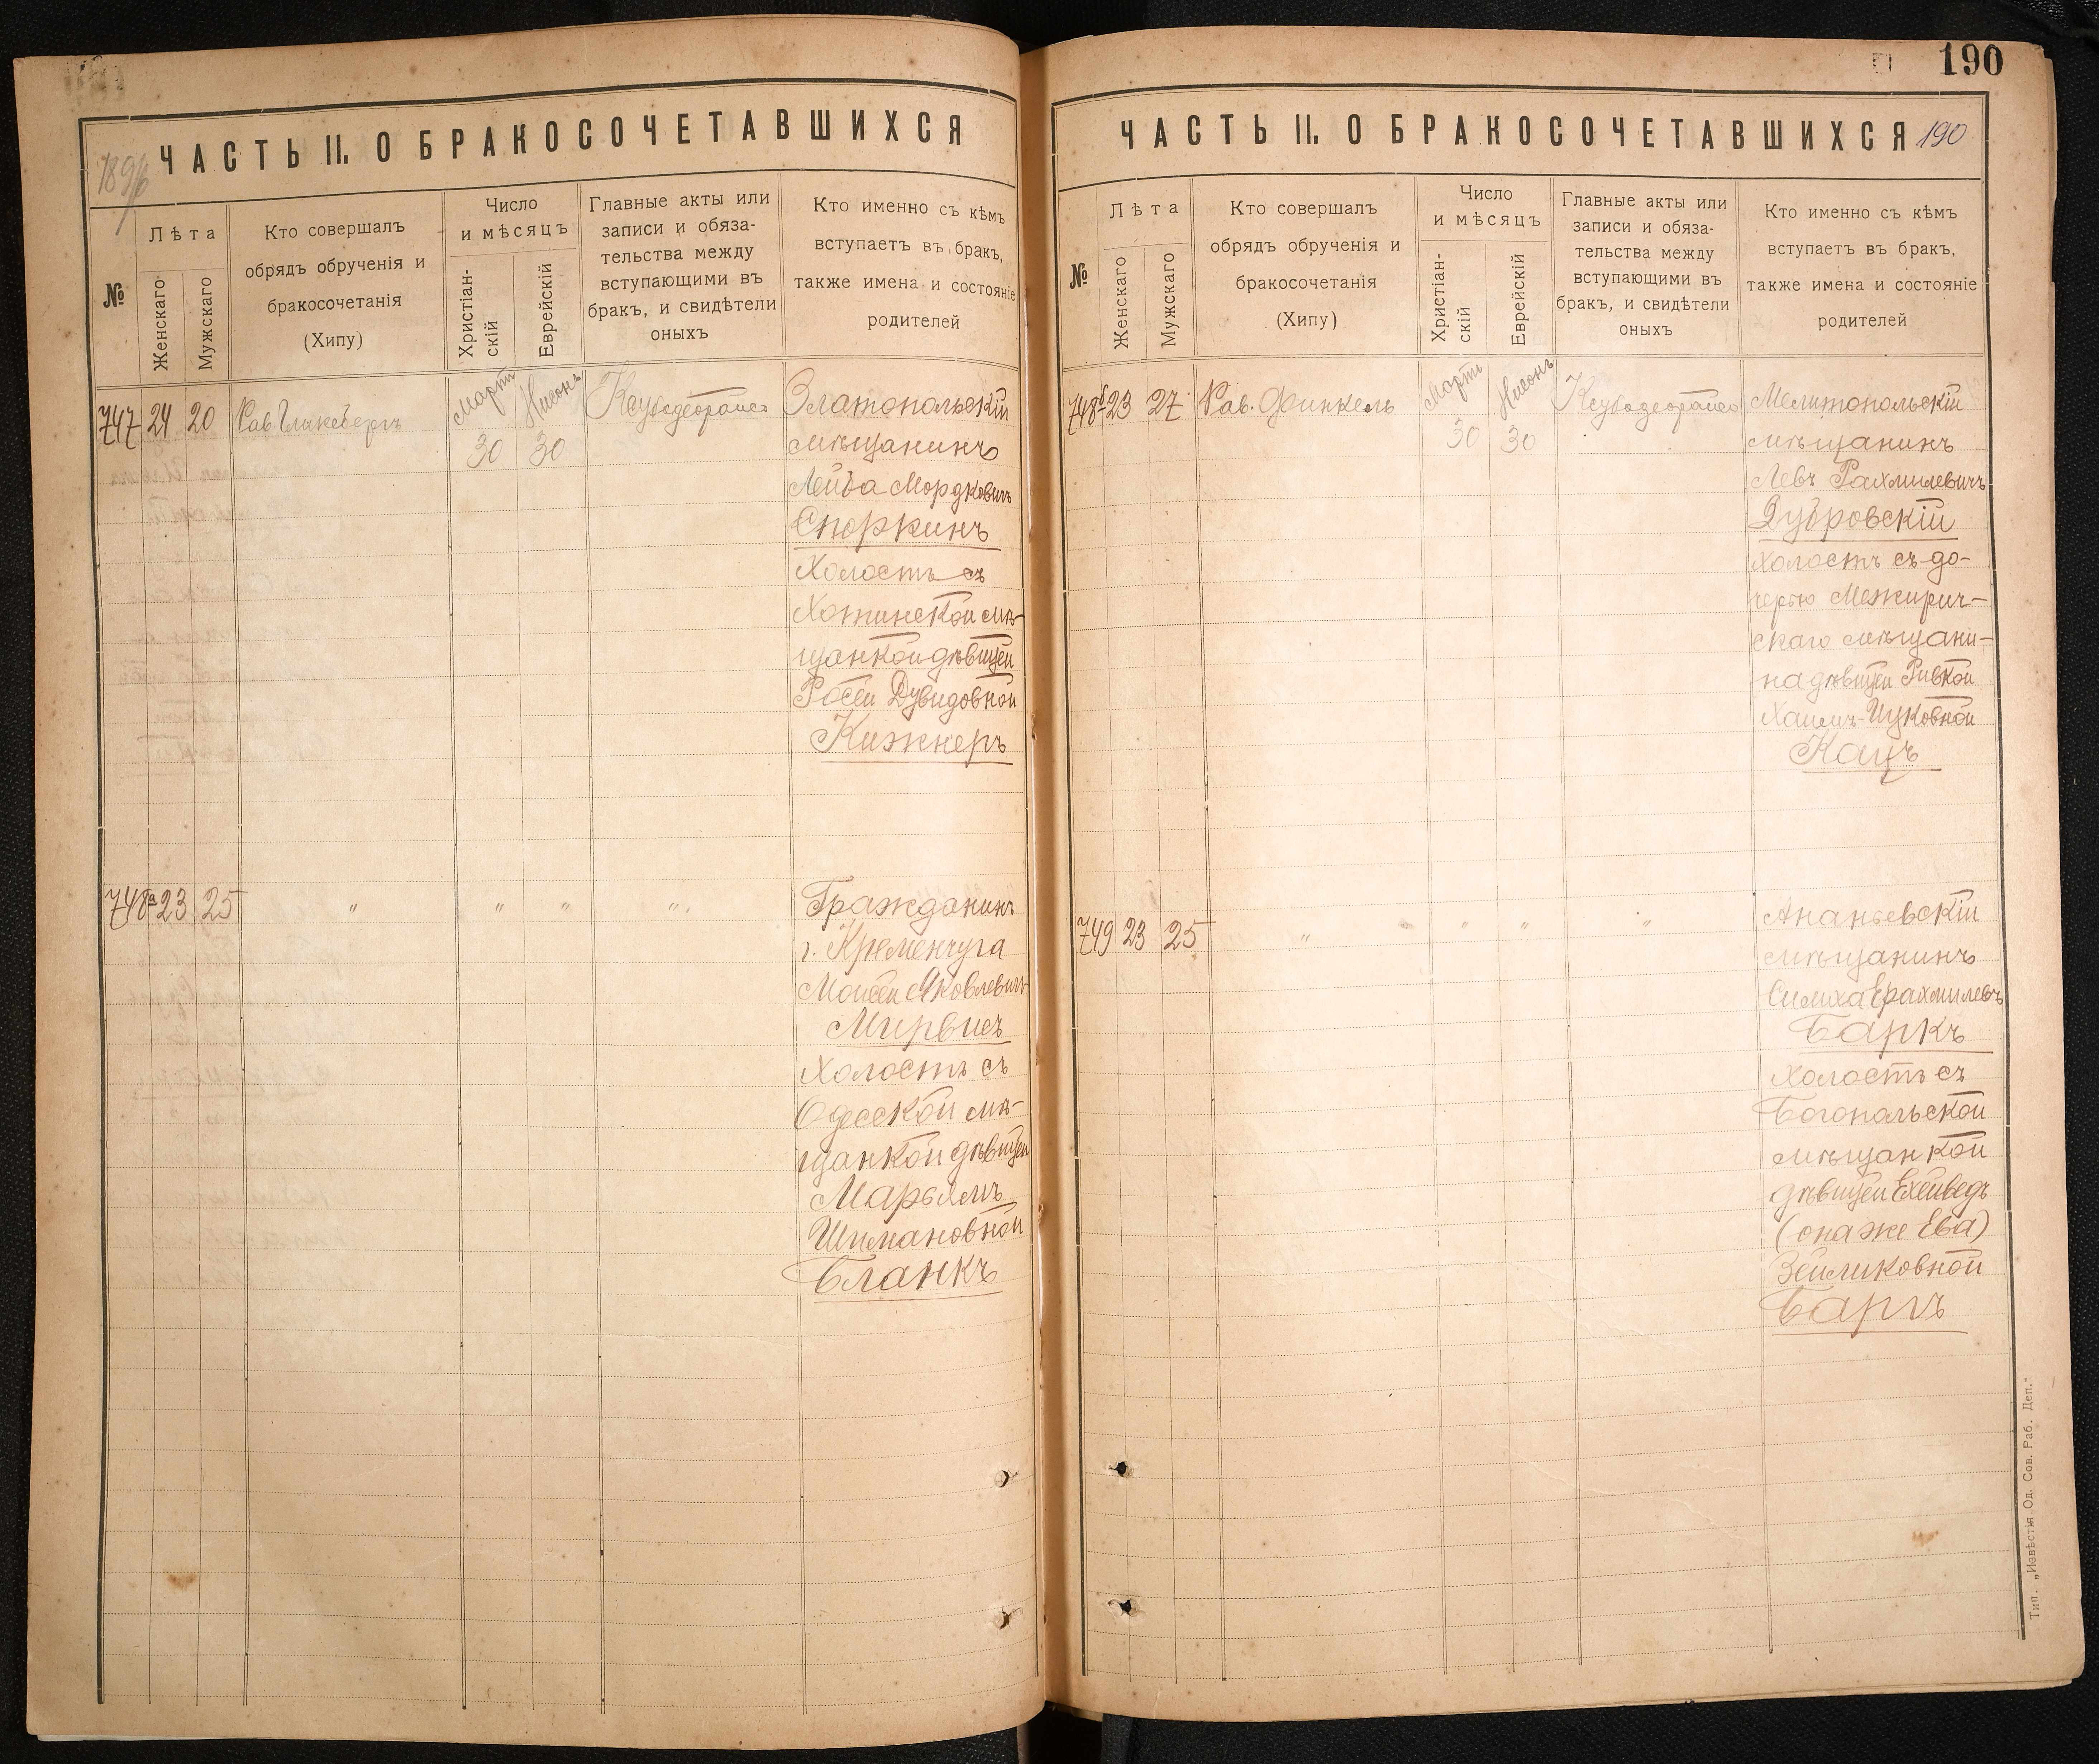 ЧАСТЬ II. О БРАКОСОЧЕТАВШИХСЯ
№
Лѣта
Женскаго
Мужскаго
Кто совершалъ
обрядъ обрученія и
бракосочетанія
(Хипу)
Число
и мѣсяцъ
Христіан-
скій
Еврейскій
Главные акты или
записи и обяза-
тельства между
вступающими въ
бракъ, и свидѣтели
оныхъ
Кто именно съ кѣмъ
вступаетъ въ бракъ,
также имена и состояніе
родителей
747 24 20
Мартъ
30 30
Златопольскій
мѣщанинъ
Лейба Мордковичъ
Споркинъ
Холостъ съ
Хотинской мѣ-
щанкой дѣвицей
Росей Дувидовной
Кижнеръ
748а 23 25 " " " "
Гражданинъ
г. Кременчуга
Моисей Яковлевичъ
Мирвисъ
Холостъ съ
Одесской мѣ-
щанкой дѣвицей
Марьямъ
Шимановной
Бланкъ
190
ЧАСТЬ II. О БРАКОСОЧЕТАВШИХСЯ 190
№
Лѣта
Женскаго
Мужскаго
Кто совершалъ
обрядъ обрученія и
бракосочетанія
(Хипу)
Число
и мѣсяцъ
Христіан-
скій
Еврейскій
Главные акты или
записи и обяза-
тельства между
вступающими въ
бракъ, и свидѣтели
оныхъ
Кто именно съ кѣмъ
вступаетъ въ бракъ,
также имена и состояніе
родителей
748б 23 27 Рав. Финкель
Мартъ
30 30
Мелитопольскій
мѣщанинъ
Левъ Рахмилевичъ
Дубровскій
Холостъ съ до-
черью Межирич-
скаго мѣщани-
на дѣвицей Ривкой
Хаимъ-Ицковной
Кацъ
749 23 25 " " " "
Ананьевскій
мѣщанинъ
Симха Ерахмилевъ
Баркъ
Холостъ съ
Богопольской
мѣщанкой
дѣвицей Ехейведъ
(она же Ева)
Зейликовной
Баргъ
Тип. „Извѣстія Од. Сов. Раб. Деп."